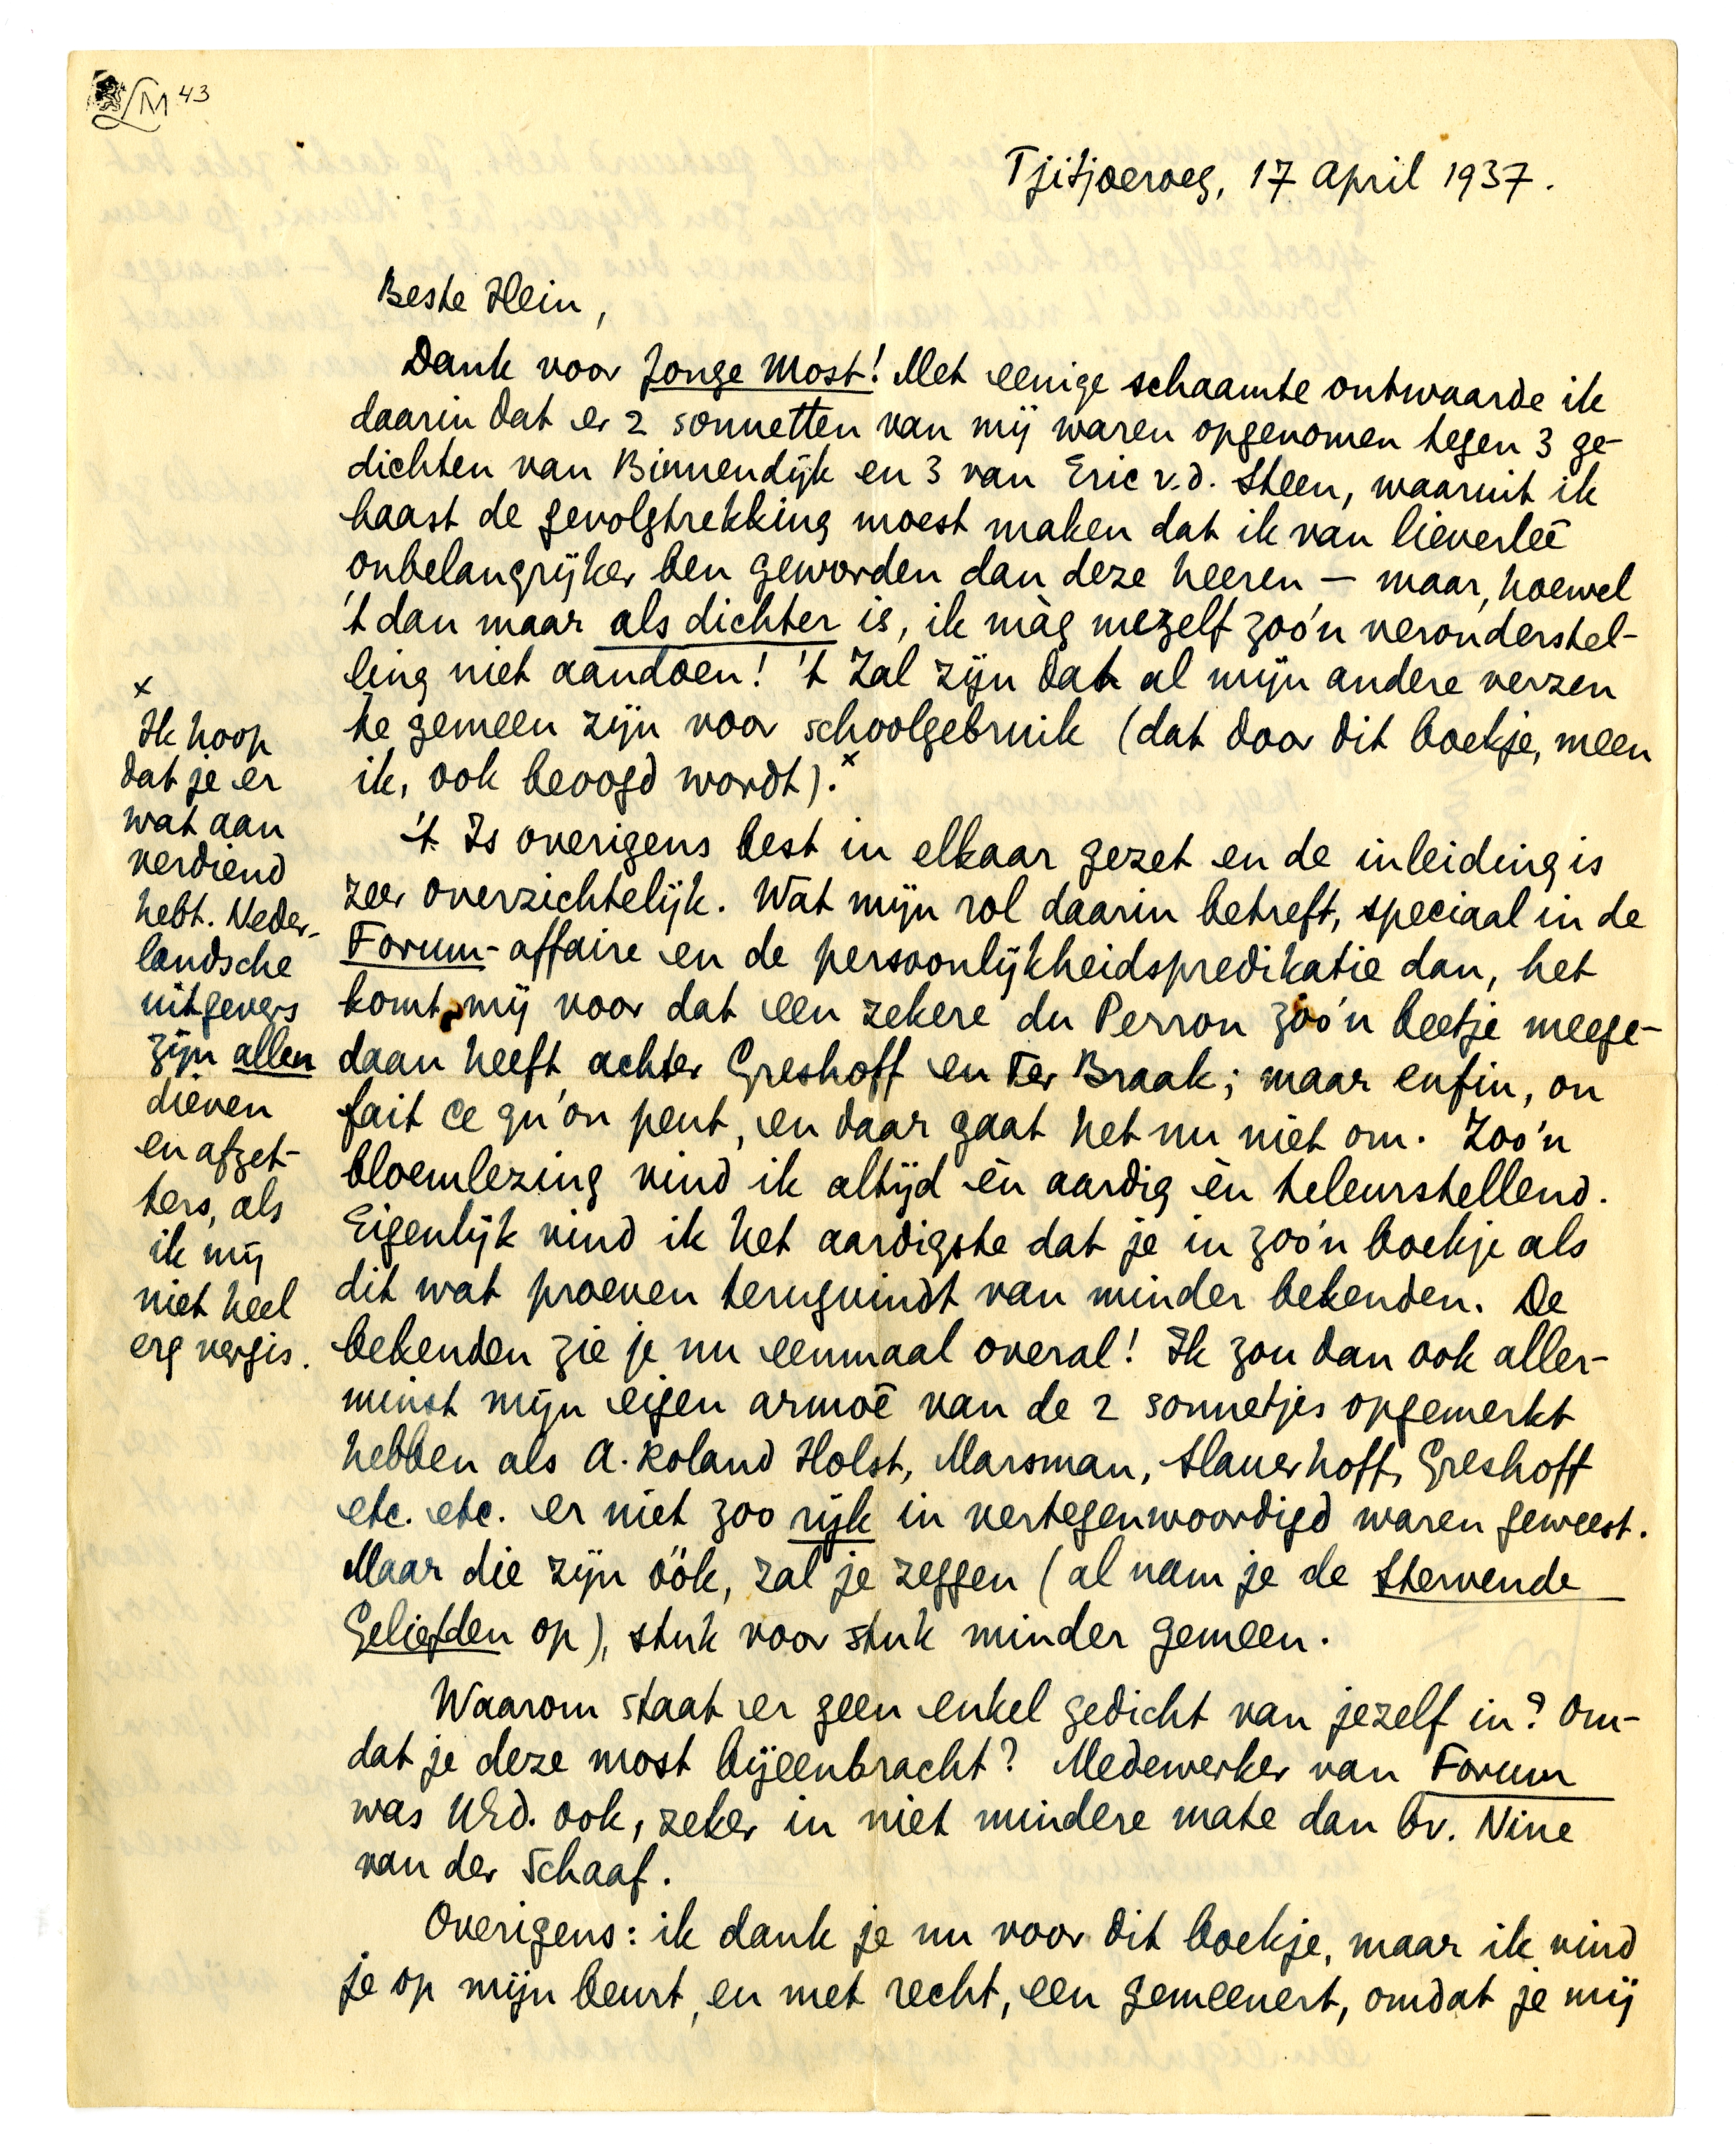 LM 43
Tjitjoeroeg, 17 April 1937.
Beste Hein,
Dank voor Jonge Most! Met eenige schaamte ontwaarde ik
daarin dat er 2 sonnetten van mij waren opgenomen tegen 3 ge-
dichten van Binnendijk en 3 van Eric v.d. Steen, waaruit ik
haast de gevolgtrekking moest maken dat ik van lieverleê
onbelangrijker ben geworden dan deze heeren — maar, hoewel
't dan maar als dichter is, ik màg mezelf zoo'n veronderstel-
ling niet aandoen! 't Zal zijn dat al mijn andere verzen
te gemeen zijn voor schoolgebruik (dat door dit boekje, meen
ik, ook beoogd wordt).x
't Is overigens best in elkaar gezet en de inleiding is
zeer overzichtelijk. Wat mijn rol daarin betreft, speciaal in de
Forum-affaire en de persoonlijkheidspredikatie dan, het
komt mij voor dat een zekere du Perron zoo'n beetje meege-
daan heeft achter Greshoff en Ter Braak; maar enfin, on
fait ce qu'on peut, en daar gaat het nu niet om. Zoo'n
bloemlezing vind ik altijd èn aardig èn teleurstellend.
Eigenlijk vind ik het aardigste dat je in zoo'n boekje als
dit wat proeven terugvindt van minder bekenden. De
bekenden zie je nu eenmaal overal! Ik zou dan ook aller-
minst mijn eigen armoê van de 2 sonnetjes opgemerkt
hebben als A. Roland Holst, Marsman, Slauerhoff, Greshoff
etc. etc. er niet zoo rijk in vertegenwoordigd waren geweest.
Maar die zijn óók, zal je zeggen (al nam je de Stervende
Geliefden op), stuk voor stuk minder gemeen.
Waarom staat er geen enkel gedicht van jezelf in? Om-
dat je deze most bijeenbracht? Medewerker van Forum
was UEd. ook, zeker in niet mindere mate dan bv. Nine
van der Schaaf.
Overigens: ik dank je nu voor dit boekje, maar ik vind
je op mijn beurt, en met recht, een gemeenert, omdat je mij
x
Ik hoop
dat je er
wat aan
verdiend
hebt. Neder-
landsche
uitgevers
zijn allen
dieven
en afzet-
ters, als
ik mij
niet heel
erg vergis.